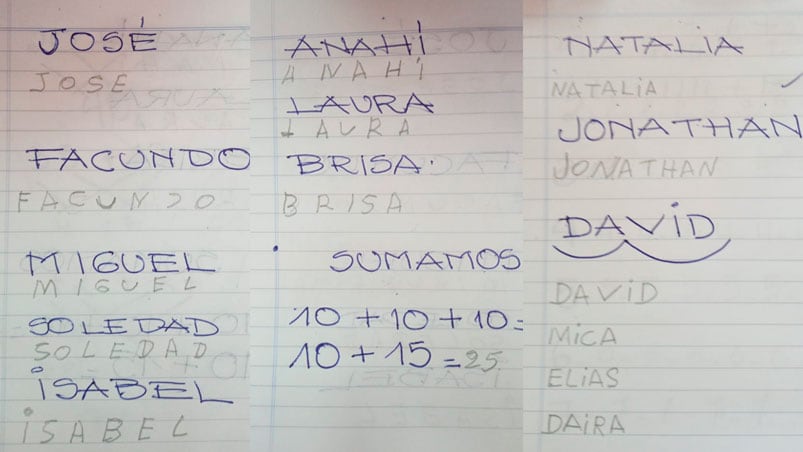 JOSÉ
JOSE
FACUNDO
FACUNDO
MIGUEL
MIGUEL
SOLEDAD
SOLEDAD
ISABEL
ISABEL
ANAHÍ
ANAHÍ
LAURA
LAURA
BRISA.
BRISA
SUMAMOS
10 + 10 + 10 =
10 + 15 = 25
NATALIA
NATALIA
JONATHAN
JONATHAN
DAVID
DAVID
MICA
ELIAS
DAIRA